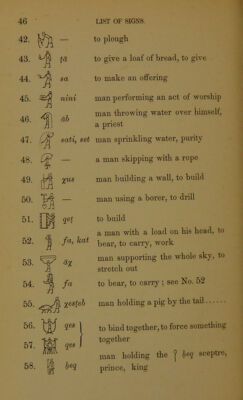 46 LIST OF SIGNS.
42. — to plough
43. ṭā to give a loaf of bread, to give
44. sa to make an offering
45. nini man performing an act of worship
46. āb man throwing water over himself, a priest
47. sati, set man sprinkling water, purity
48. — a man skipping with a rope
49. χus man building a wall, to build
50. — man using a borer, to drill
51. qeṭ to build
52. fa, kat a man with a load on his head, to bear, to carry, work
53. āχ man supporting the whole sky, to stretch out
54. fa to bear, to carry; see No. 52
55. χesṭeb man holding a pig by the tail......
56. qes to bind together, to force something
57. qes together
58. ḥeq man holding the ḥeq sceptre, prince, king